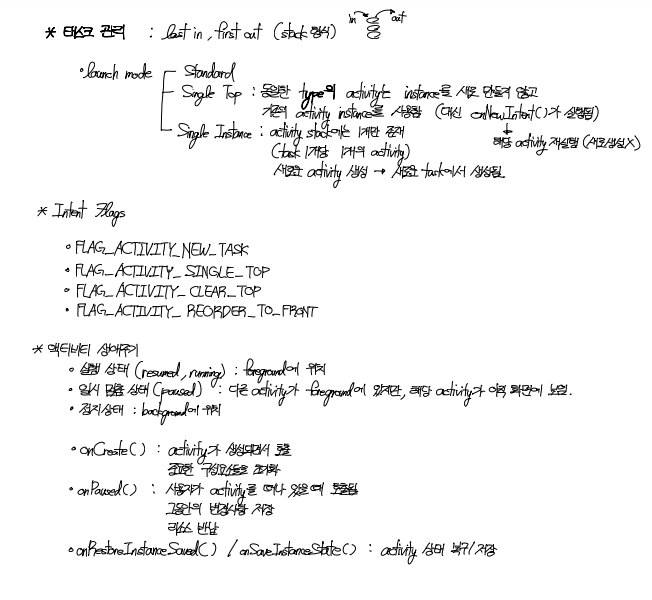 * 태스크 관리 : last in, first out (stack 형식) in out
• launch mode Standard
Single Top : 동일한 type의 activity는 instance를 새로 만들지 않고
기존의 activity instance를 사용함 (대신 onNewIntent()가 실행됨)
↓
해당 activity 재실행 (새로생성X)
Single Instance : activity stack에는 1개만 존재
(task 1개당 1개의 activity)
새로운 activity 생성 → 새로운 task에서 생성됨
* Intent Flags
• FLAG_ACTIVITY_NEW_TASK
• FLAG_ACTIVITY_SINGLE_TOP
• FLAG_ACTIVITY_CLEAR_TOP
• FLAG_ACTIVITY_REORDER_TO_FRONT
* 액티비티 생애주기
• 실행 상태 (resumed, running) : foreground에 위치
• 일시 멈춤 상태 (paused) : 다른 activity가 foreground에 있지만, 해당 activity가 아직 화면에 보임.
• 정지상태 : background에 위치
• onCreate() : activity가 생성되면서 호출
중요한 구성요소들을 초기화
• onPaused() : 사용자가 activity를 떠나 있을 때 호출됨
그동안의 변경사항 저장
리소스 반납
• onRestoreInstanceSaved() / onSaveInstanceState() : activity 상태 복구/저장